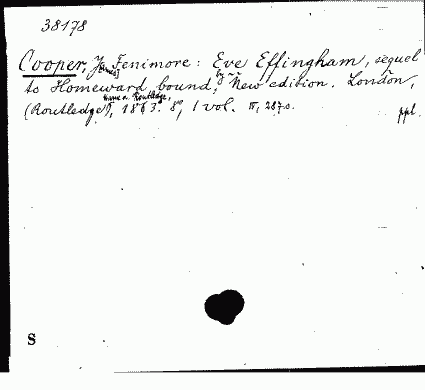 38178
Cooper, J[ames] Fenimore: Eve Effingham, sequel
to Homeward bound, by ~ New edition. London,
(Routledge), Warne & Routledge, 1863. 8°, 1 vol. II, 287 s.
ppl.
S